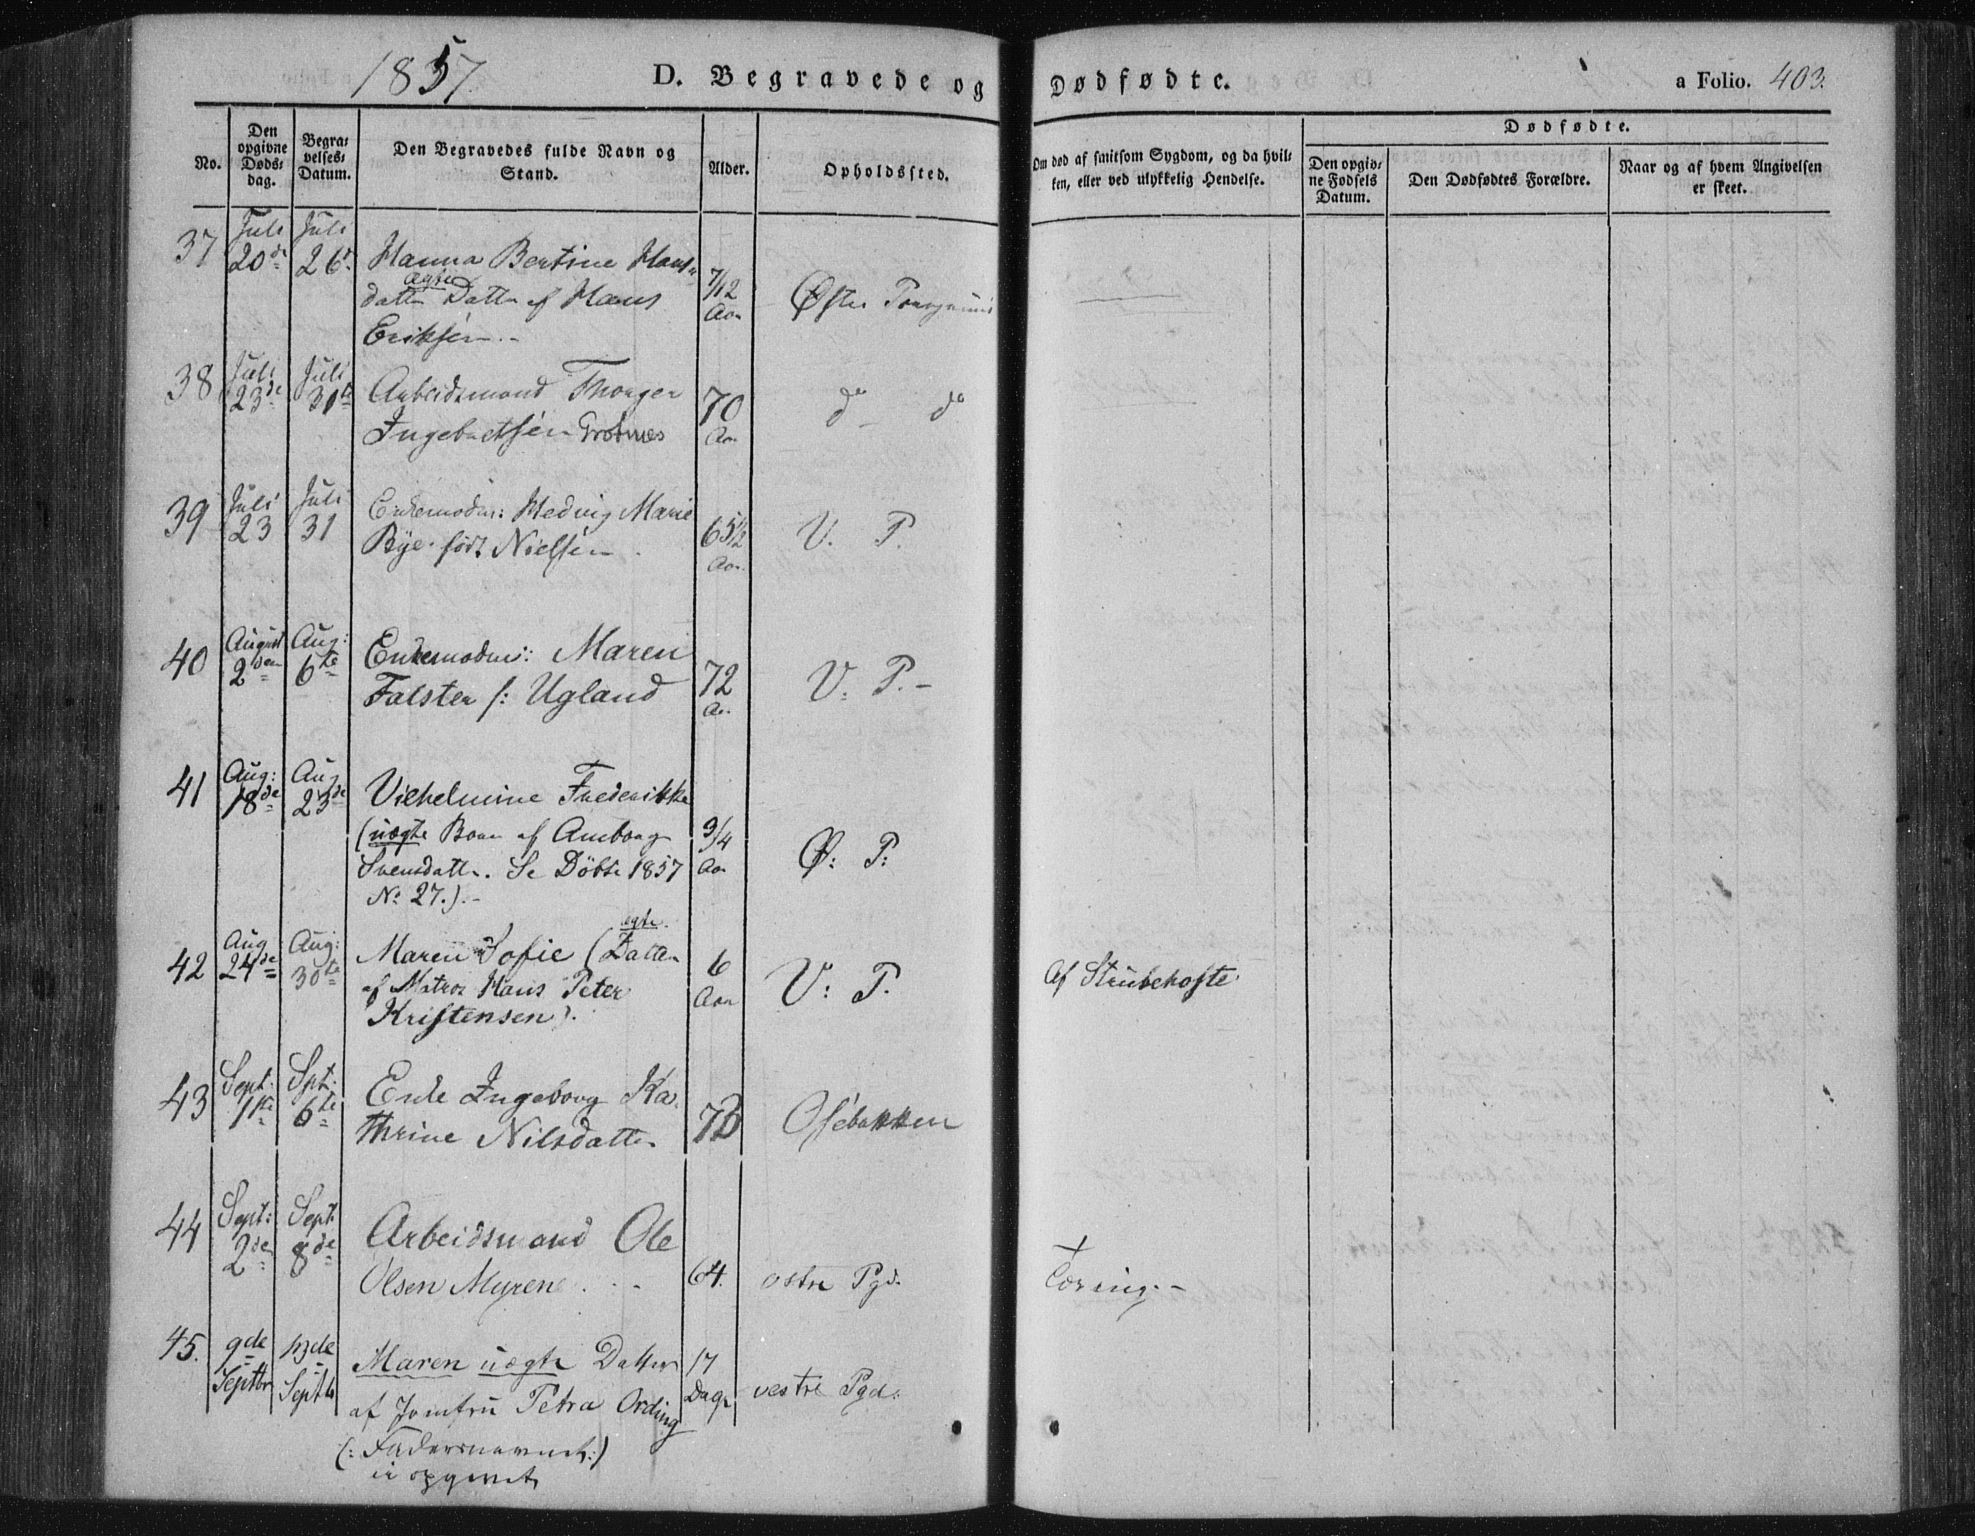 1857.
D. Begravede og Dødfødte.
a Folio. 403.
No.
Den opgivne Døds-dag.
Begra-velses-Datum.
Den Begravedes fulde Navn og Stand.
Alder.
Opholdssted.
Om død af smitsom Sygdom, og da hvil-
ken, eller ved ulykkelig Hendelse.
Dødfødte.
Den opgiv-ne Fødsels Datum.
Den Dødfødtes Forældre.
Naar og af hvem Angivelsen er skeet.
37 Juli 20de Juli 26
Hanna Bertine Hans-
datter ægte Datter af Hans
Eriksen.
7/12 Aar
Øster
38 Juli 23de Juli 31te
Arbeidsmand Thorger
Ingebretsen Grotnes
70 Aar
do do
39 Juli 23 Juli 31
Enkemadm: Hedvig Marie
Bye født Nielsen
65½ Aar.
V. P.
40 August 2den Aug: 6te
Enkemadm: Maren
Falster f: Ugland
72 Aar
V: P.-
41 Aug: 18de Aug 23de
Vilhelmine Frederikke
(uægte Barn af Amborg
Svensdatter. Se Döbte 1857
No 27.).-
3/4 Aar
Ø: P:
42 Aug 24de Aug: 30te
Maren Sofie (ægte Datter
af Matros Hans Peter
Kristensen).
6 Aar
V: P.
Af Strubehoste
43 Sept: 1ste Spt: 6te
Enke Ingeborg Ka-
thrine Nilsdatter
73
Osebakken
44 Sept: 2den Sept 8de
Arbeidsmand Ole
Olsen Myrene
64.
ostre Pgd.
Tæring.-
45. 9de Septbr 13de Septb
Maren uægte Datter
af Jomfru Petra Ording
(: Fadersnavnet:)
ei opgivet
17 Dage
vestre Pgd.